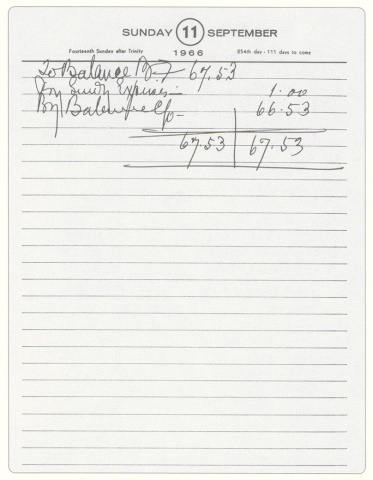 SUNDAY 11 SEPTEMBER
Fourteenth Sunday after Trinity 1966 254th day - 111 days to come
To Balance B/F 67.53
By Sundry Expenses — 1.00
By Balance c/o — 66.53
67.53 67.53